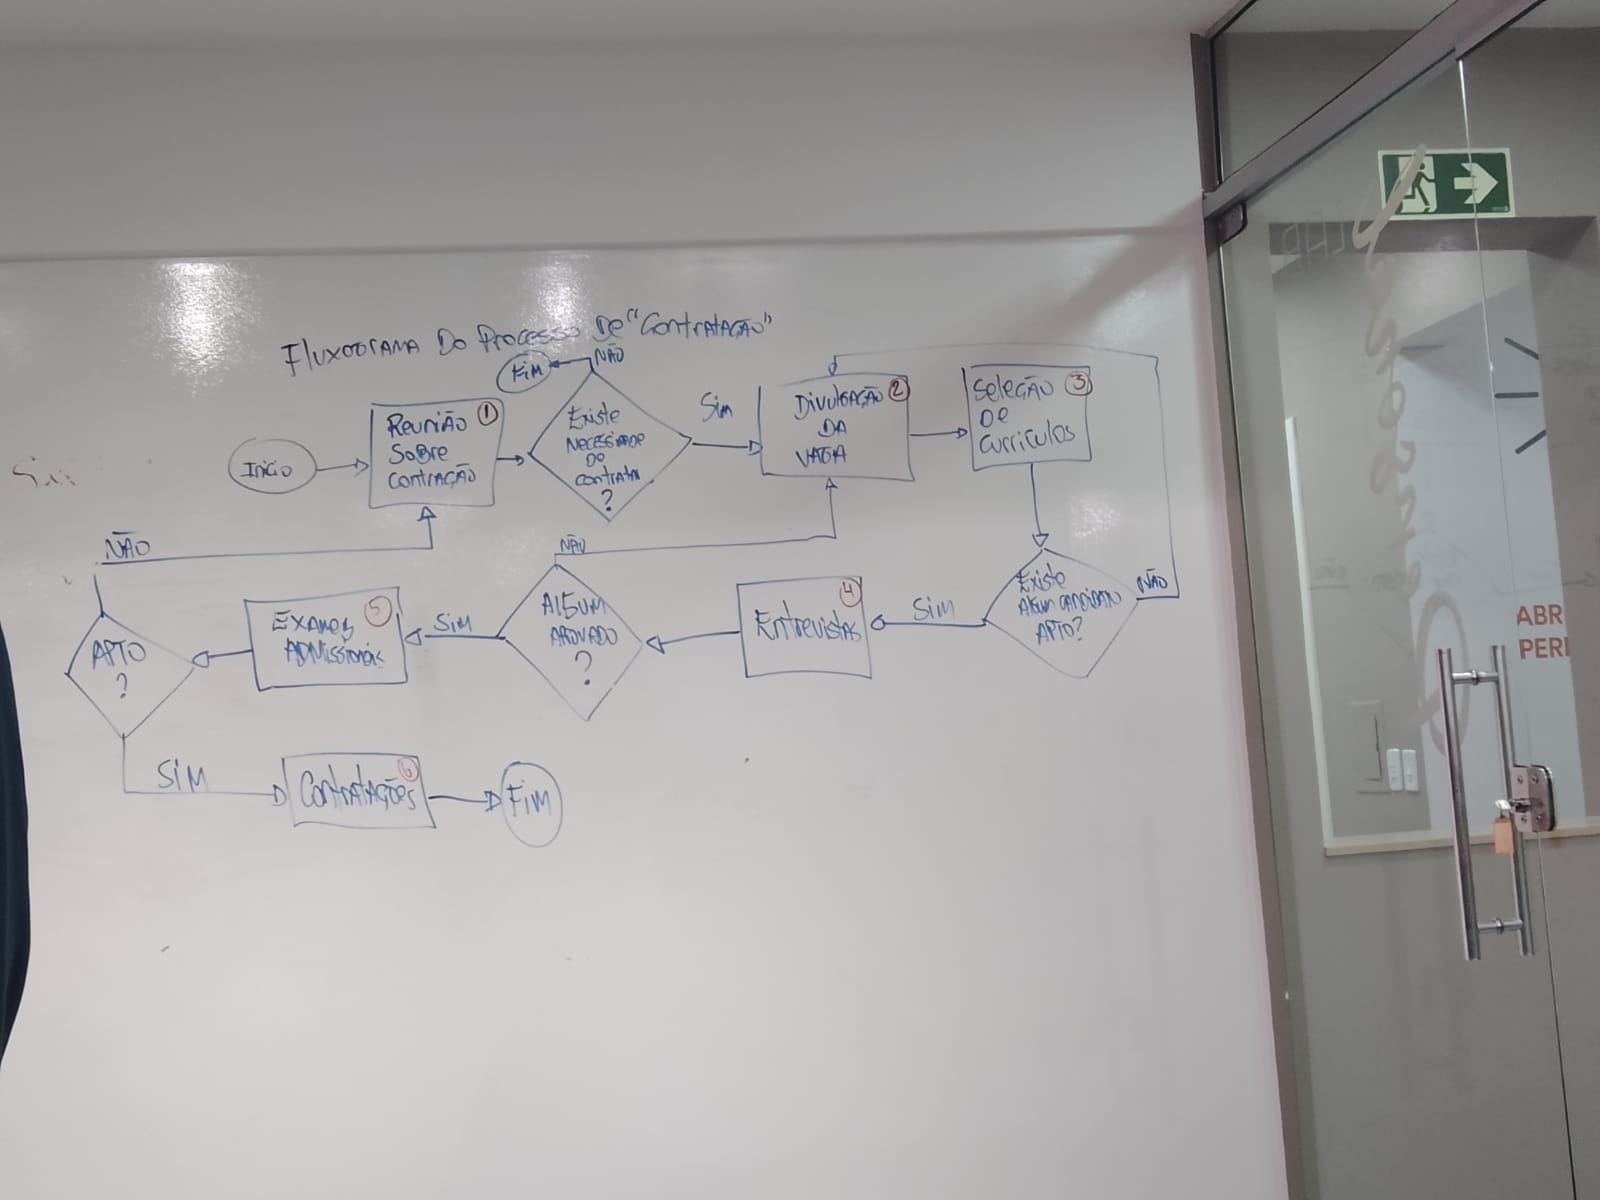 Fluxograma Do Processo De "Contratação"
Fim
NÃO
Início
Reunião 1
Sobre
Contração
Existe
Necessidade
De
contratar
?
Sim
Divulgação 2
DA
VAGA
Seleção 3
De
Currículos
NÃO
NÃO
Existe
Algum candidato
APTO?
NÃO
SIM
Entrevistas 4
ALGUM
APROVADO
?
SIM
Exames 5
ADMissionais
APTO
?
SIM
Contratações 6
FIM
ABR
PERI